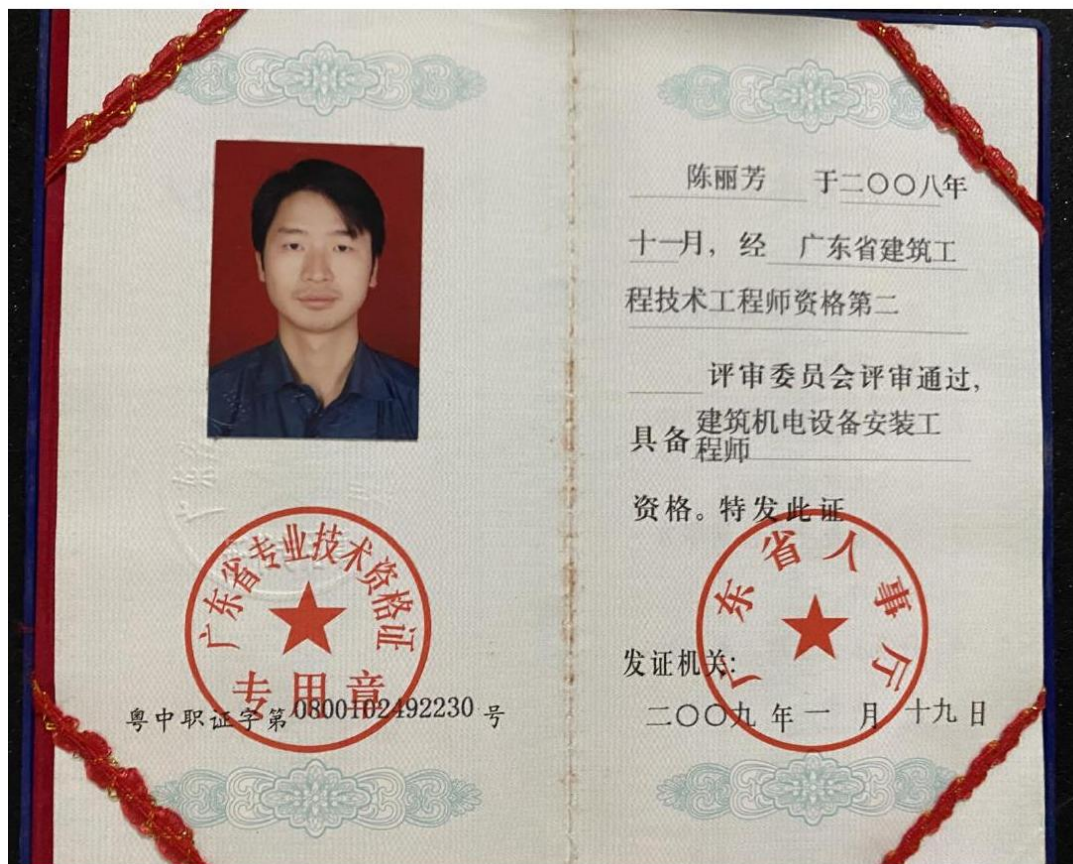 广东省专业技术资格证
专用章
粤中职证字第0800102492230号
陈丽芳 于二〇〇八年
十一月，经 广东省建筑工
程技术工程师资格第二
评审委员会评审通过，
具备建筑机电设备安装工
程师
资格。特发此证
广东省人事厅
发证机关：
二〇〇九年一月十九日